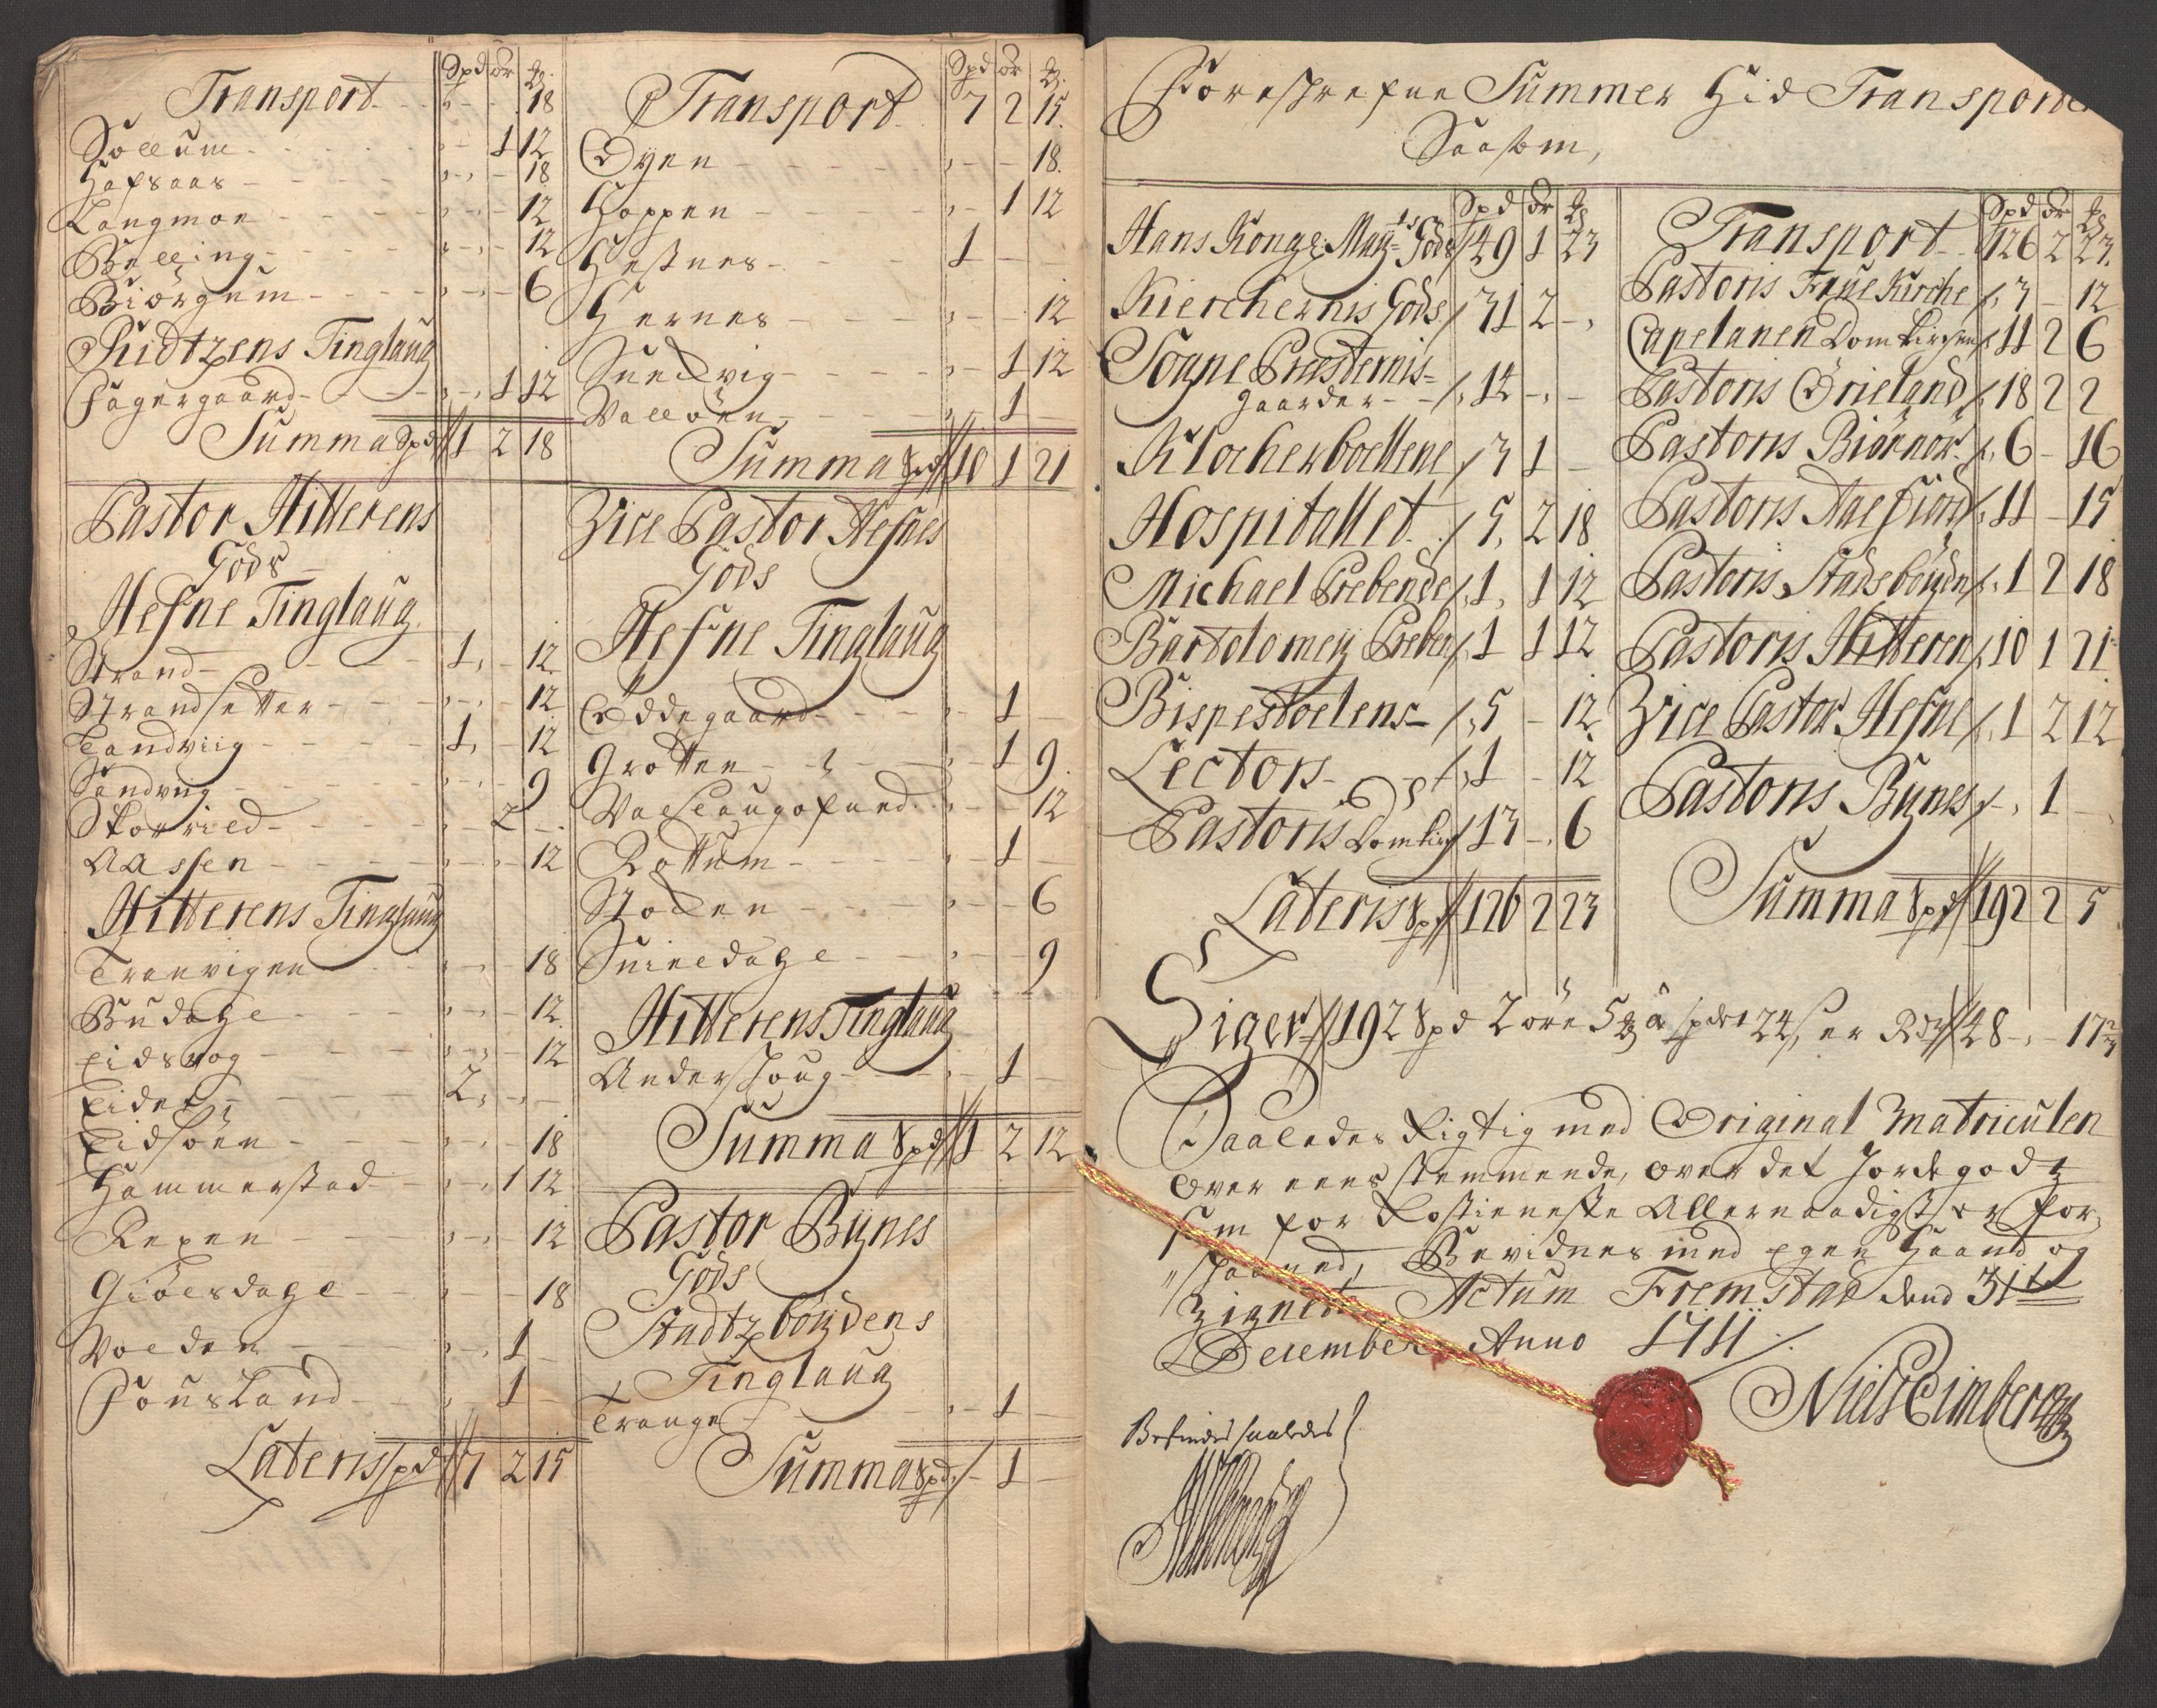 Spd ør ₰.
Transport - - 18
Søllum - 1 12
Hafsaas - - 18
Langmoe - - 12
Belling - - 12
Biörgum - - 6
Ridtzens Tinglaug
Fagergaard - 1 12
Summa Spd 1 2 18
Pastor Hitterens
Gods
Hefne Tinglaug
Strand 1 - 12
Strandsetter - - 12
Tandviig 1 - 12
Sandvug - - 9
Skorrild - 2 -
Aassen - - 12
Hitterens Tinglaug
Tranvigen - - 18
Budahl - - 12
Eidsvog - - 12
Eidet 2 - -
Eidsöen - - 18
Hammerstad - 1 12
Repen - - 12
Giöesdahl - - 18
Volden - 1 -
Fousland - 1 -
Lateris spd 7 2 15
Spd ør ₰.
Transport 7 2 15
Öyen - - 18
Hoppen - 1 12
Hestnes 1 - -
Hernes - - 12
Suedvig - 1 12
Valløen - 1 -
Summa Spd 10 1 21
Vice Pastor Hefnes
Gods
Hefne Tinglaug
Öddegaard - 1 -
Grotten - 1 9
Valslaugofued - - 12
Rottum - 1 -
Stolen - - 6
Suinedahl - - 9
Hitterens Tinglaug
Anderskoug - 1 -
Summa Spd 1 2 12
Pastor Bynes
Gods
Stadtzböydens
Tinglaug
Trange - 1 -
Summa spd - 1 -
Forreskrefne Summer Hid Transporte
Saasom,
Spd ør ₰
Hans Kongl: May:ts Gods 49 1 23
Kierchernis Gods 31 2 -
Sogne Præsternis
gaarder 14 - -
Klocherbollene 3 1 -
Hospitallet 5 2 18
Michael Prebende 1 1 12
Bartolomey Preben 1 1 12
Bispestoelens 5 - 12
Lectors 1 - 12
Pastoris Domkir 13 - 6
Lateris spd 126 2 23
Spd ør ₰
Transport 126 2 23.
Pastoris Frue Kirche 3 - 12
Capelanen Domkirchen 11 2 6
Pastoris Örieland 18 2 2
Pastoris Biørnør 6 - 16
Pastoris Aaefiord 11 - 15
Pastoris Stadsböyden 1 2 18
Pastoris Hitteren 10 1 21
Vice Pastor Hefne 1 2 12
Pastoris Bynes - 1 -
Summa Spd 192 2 5
Siger 192 Spd 2 öre 5 ₰ â spdet 24 s, er Rdr 48 - 17
Saaledes Rigtig med Original Matriculen
over eens stemmende, over det Jordegodz
som for Rostieneste Allernaadigst er for,
"skaaned, Bevidnes med egen Haand og
Zignete Actum Fremstad dend 31te
December Anno 1711
Niels Eimberg
Befindes saaledes